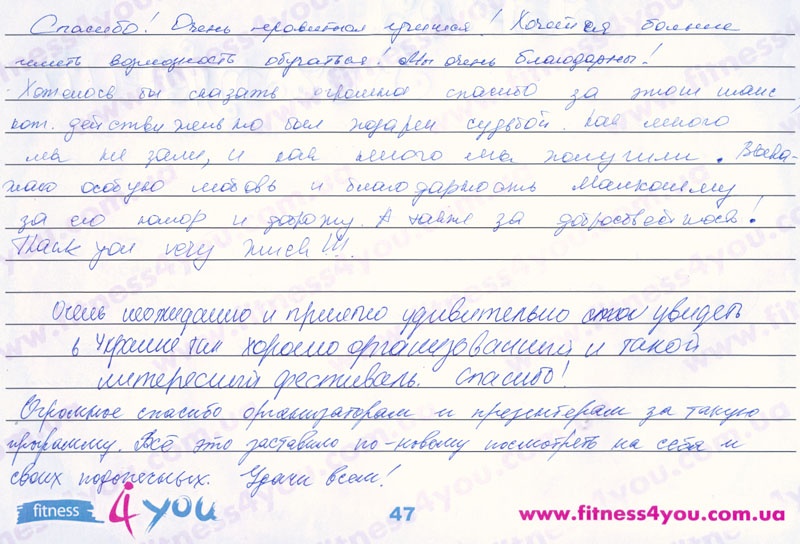 Спасибо! Очень нравится учиться! Хочется больше
иметь возможность обучаться! Мы очень благодарны!
Хотелось бы сказать огромное спасибо за этот шанс,
кот. действительно был подарен судьбой. Как много
мы не знали, и как много мы получили. Выра-
жаю особую любовь и благодарность
за его юмор и . А также за !
Thank you very much!!!
Очень неожиданно и приятно удивительно увидеть
в Украине так хорошо организованный и такой
интересный фестиваль. Спасибо!
Огромное спасибо организаторам и презентерам за такую
программу. Всё это заставило по-новому посмотреть на себя и
своих подопечных. Удачи всем!
fitness 4 you
47
www.fitness4you.com.ua